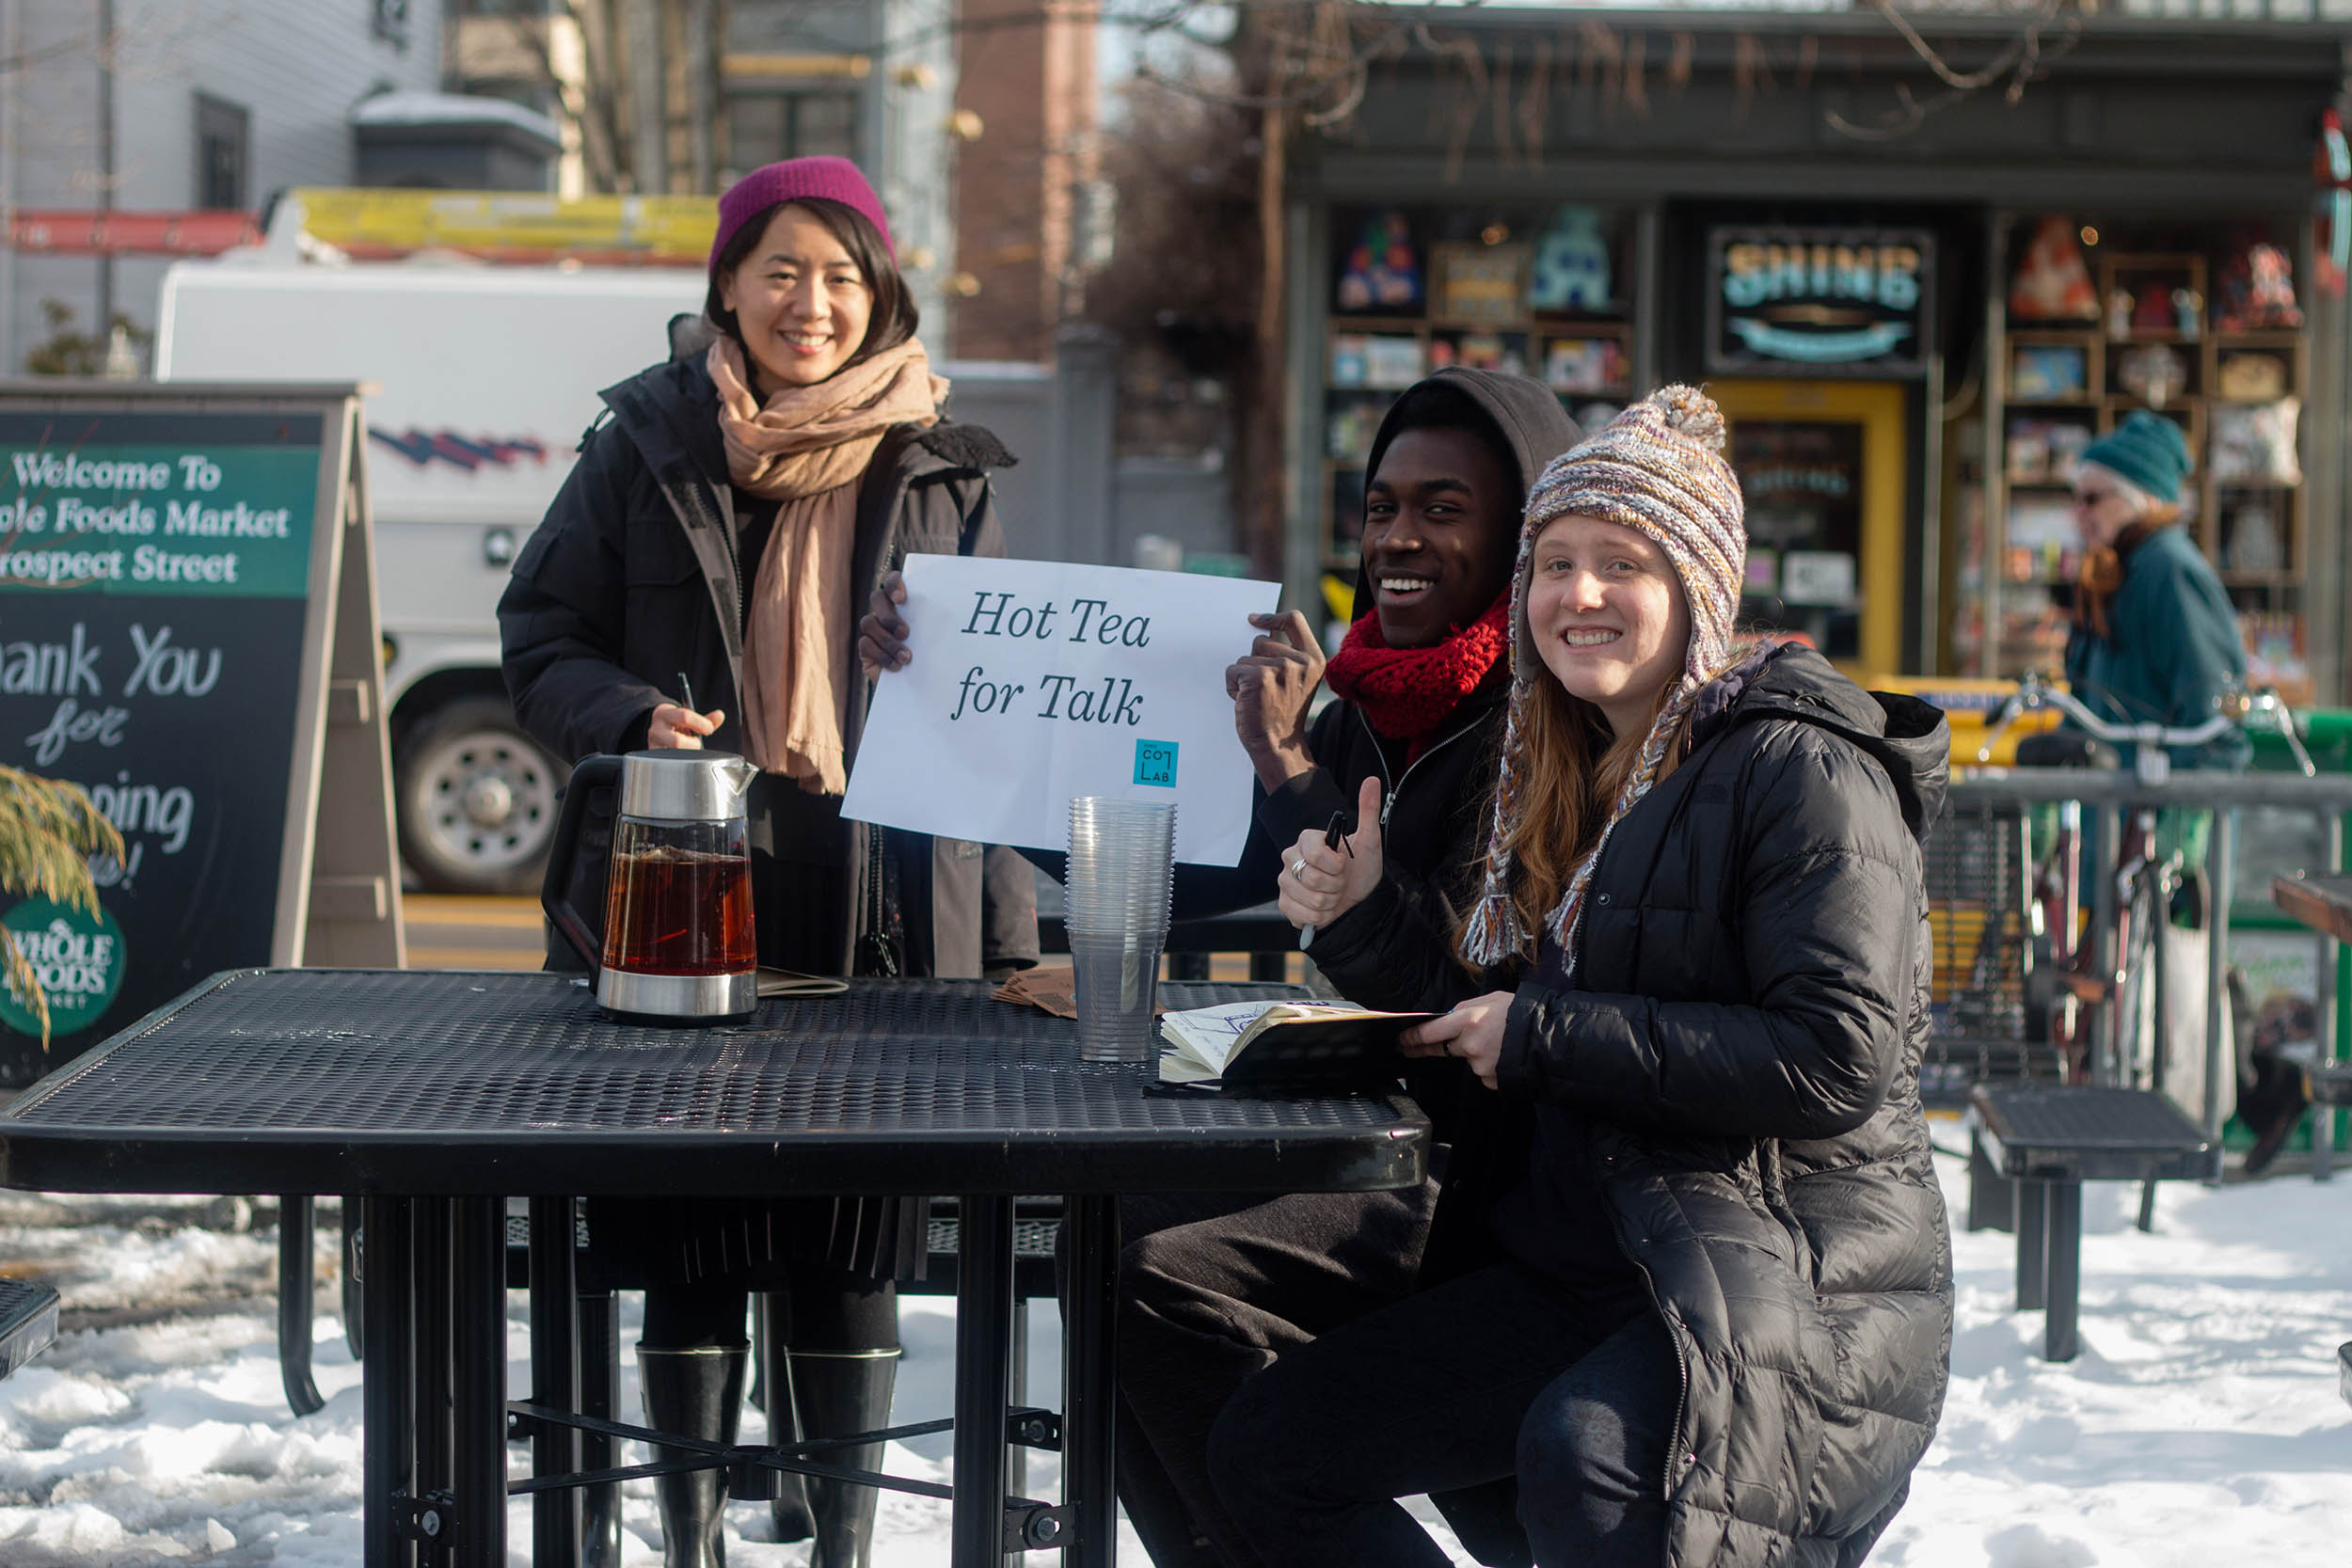 Welcome To
ole Foods Market
rospect Street
hank You
for
pping
WHOLE
FOODS
MARKET
Hot Tea
for Talk
CO
LAB
SHINE